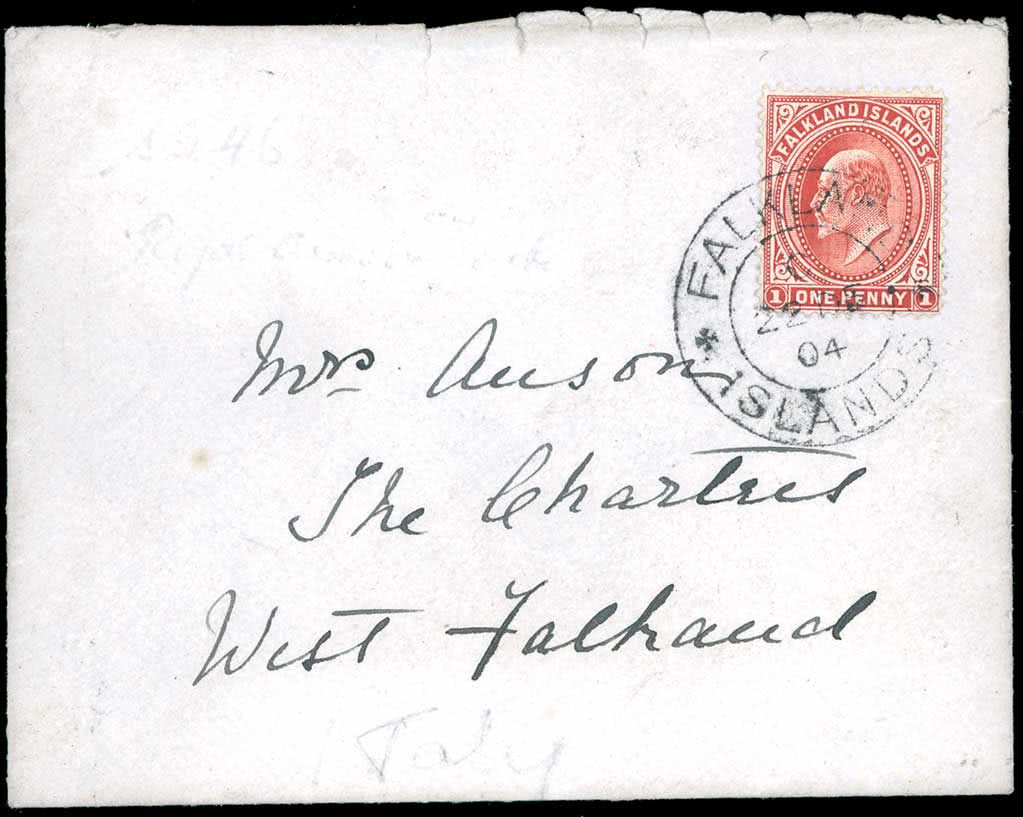 FALKLAND ISLANDS
1 ONE PENNY 1
FALKLA
22 DE
04
ISLANDS
46
Mrs Anson
The Chartres
West Falkland